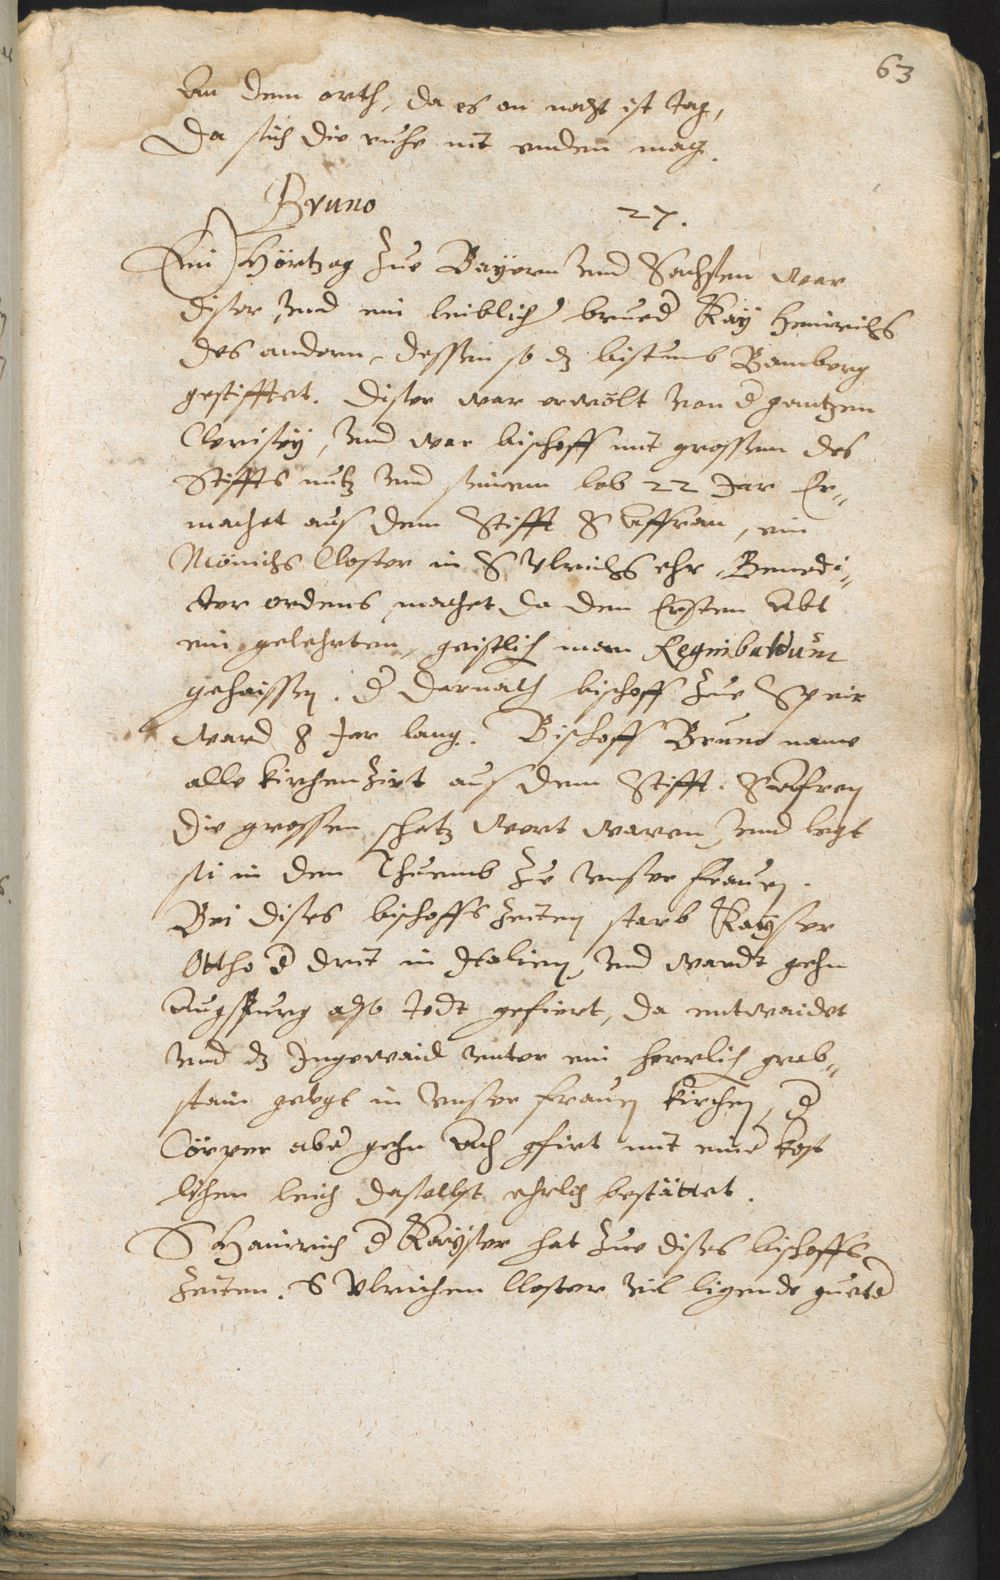 63
An dem orth, da es on nacht ist tag,
Da sich die ruhe nit enden mag.
Bruno 27.
Ein Hörtzog zue Bayern vnd Sachsen war
diser, vnd ein leiblicher brued Kay Heinrichs
des andern, dessen so dz bistumb Bamberg
gestifftet. Diser war erwölt von d gantzen
Clerisey, vnd war bischoff mit grossem des
Stiffts nutz vnd seinem lob 22 Jar Er„
machet aus dem Stifft S Affran, ein
Mönichs Closter in S Vlrichs ehr, Benedi„
cter ordens, machet da den Ersten Abt
ein gelehrten, geistlich man Reginbaldum
gehaissen. d darnach bischoff zue Speir
ward 8 Jar lang. Bischoff Bruno name
alle kirchen Zirt aus dem Stifft. S Affren
die grossen schatz wert waren, vnd legt
sie in den Thuemb zue vnser frauen.
Bei dises bischoffs Zeiten starb Kayser
Ottho d drit in Italien, vnd wardt gehn
Augspurg also todt gefiert, da entwaidet
vnd dz Ingewaid vnter ein herrlich grab„
stain gelegt in vnser frauen kirchen, d
Cörper aber gehn Ach gfirt mit einer kost
lichen leich daselbst ehrlich bestättet.
S Hainrich d Kayser hat zue dises bischoffs
Zeiten. S Vlrichem Closter vil ligende gueter